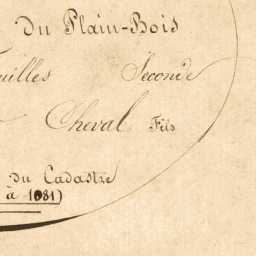 du Plain-Bois
uilles Seconde
Cheval Fils
du Cadastre
à 1081)